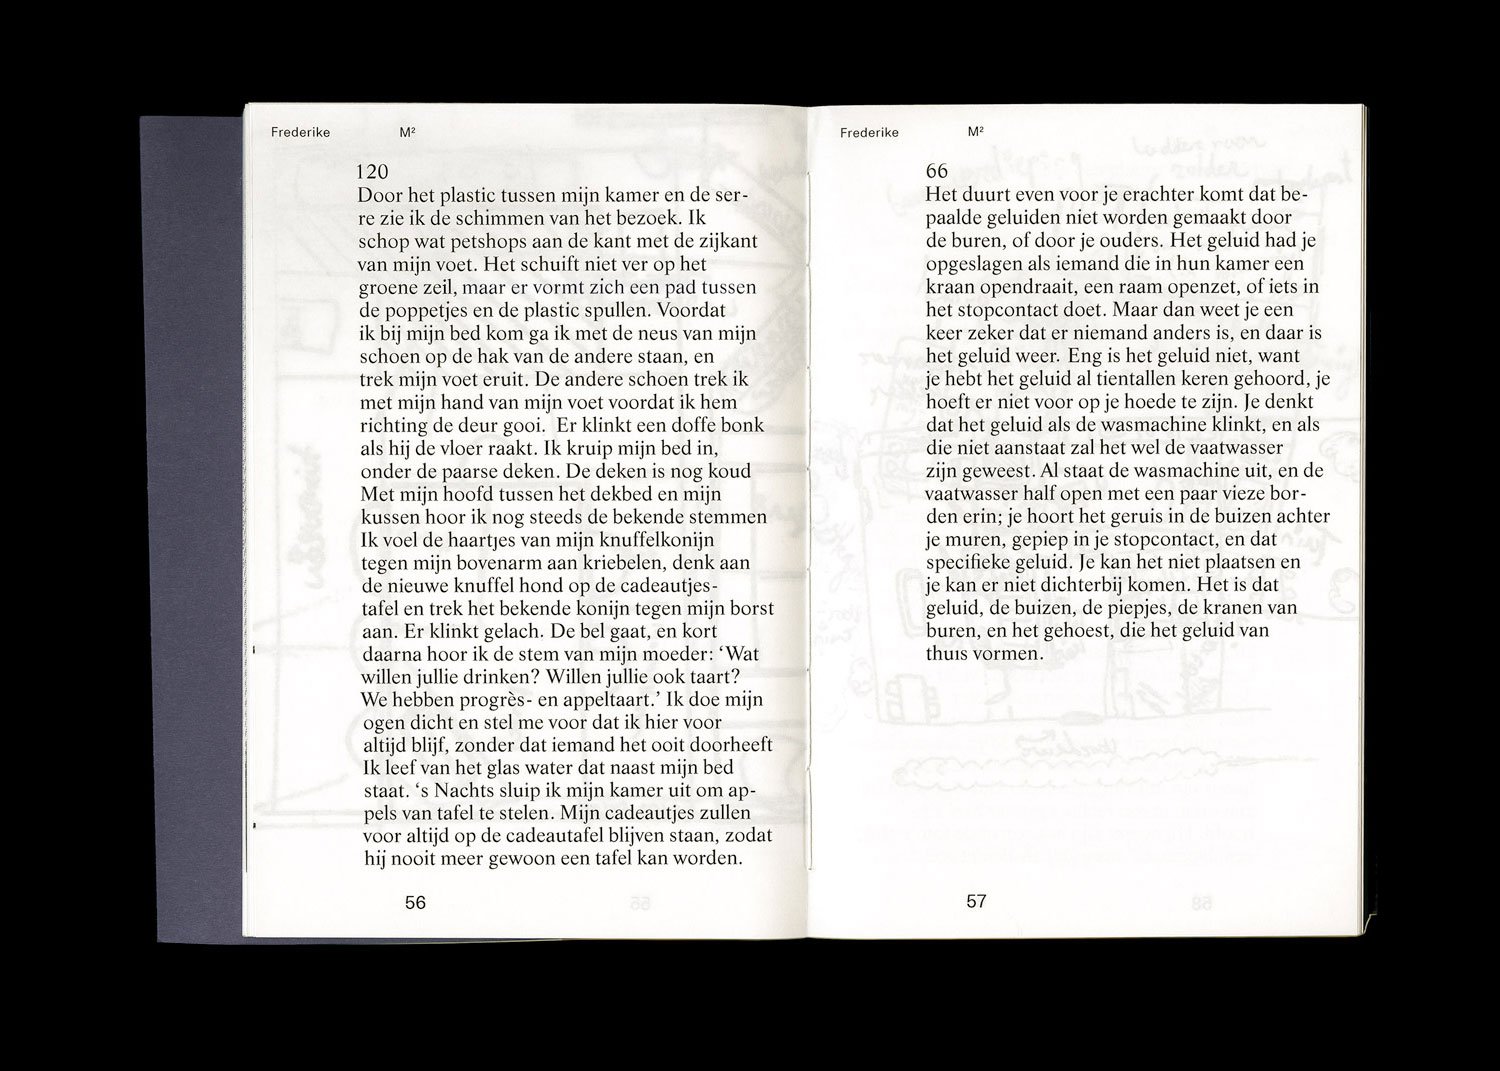 Frederike M²
120
Door het plastic tussen mijn kamer en de ser-
re zie ik de schimmen van het bezoek. Ik
schop wat petshops aan de kant met de zijkant
van mijn voet. Het schuift niet ver op het
groene zeil, maar er vormt zich een pad tussen
de poppetjes en de plastic spullen. Voordat
ik bij mijn bed kom ga ik met de neus van mijn
schoen op de hak van de andere staan, en
trek mijn voet eruit. De andere schoen trek ik
met mijn hand van mijn voet voordat ik hem
richting de deur gooi. Er klinkt een doffe bonk
als hij de vloer raakt. Ik kruip mijn bed in,
onder de paarse deken. De deken is nog koud
Met mijn hoofd tussen het dekbed en mijn
kussen hoor ik nog steeds de bekende stemmen
Ik voel de haartjes van mijn knuffelkonijn
tegen mijn bovenarm aan kriebelen, denk aan
de nieuwe knuffel hond op de cadeautjes-
tafel en trek het bekende konijn tegen mijn borst
aan. Er klinkt gelach. De bel gaat, en kort
daarna hoor ik de stem van mijn moeder: ‘Wat
willen jullie drinken? Willen jullie ook taart?
We hebben progrès- en appeltaart.’ Ik doe mijn
ogen dicht en stel me voor dat ik hier voor
altijd blijf, zonder dat iemand het ooit doorheeft
Ik leef van het glas water dat naast mijn bed
staat. ‘s Nachts sluip ik mijn kamer uit om ap-
pels van tafel te stelen. Mijn cadeautjes zullen
voor altijd op de cadeautafel blijven staan, zodat
hij nooit meer gewoon een tafel kan worden.
56
Frederike M²
66
Het duurt even voor je erachter komt dat be-
paalde geluiden niet worden gemaakt door
de buren, of door je ouders. Het geluid had je
opgeslagen als iemand die in hun kamer een
kraan opendraait, een raam openzet, of iets in
het stopcontact doet. Maar dan weet je een
keer zeker dat er niemand anders is, en daar is
het geluid weer. Eng is het geluid niet, want
je hebt het geluid al tientallen keren gehoord, je
hoeft er niet voor op je hoede te zijn. Je denkt
dat het geluid als de wasmachine klinkt, en als
die niet aanstaat zal het wel de vaatwasser
zijn geweest. Al staat de wasmachine uit, en de
vaatwasser half open met een paar vieze bor-
den erin; je hoort het geruis in de buizen achter
je muren, gepiep in je stopcontact, en dat
specifieke geluid. Je kan het niet plaatsen en
je kan er niet dichterbij komen. Het is dat
geluid, de buizen, de piepjes, de kranen van
buren, en het gehoest, die het geluid van
thuis vormen.
57